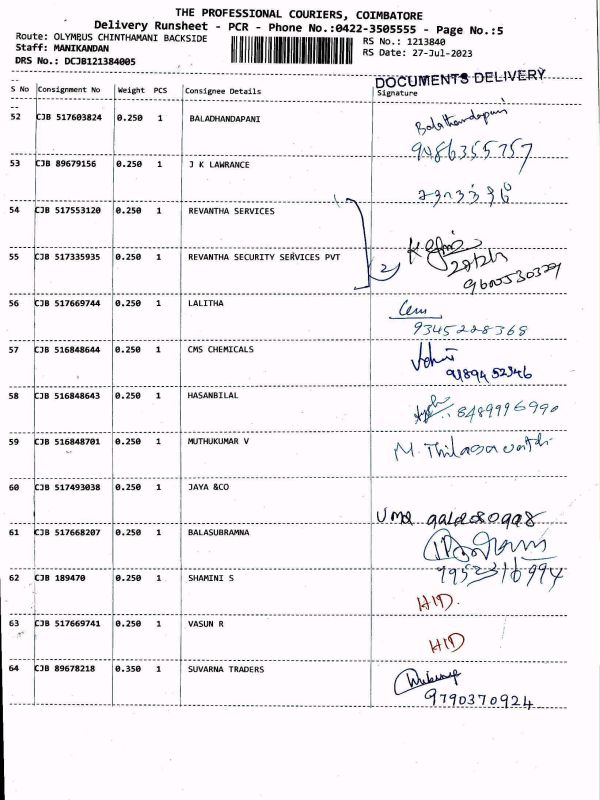 THE PROFESSIONAL COURIERS, COIMBATORE
Delivery Runsheet - PCR - Phone No.:0422-3505555 - Page No.:5
Route: OLYMPUS CHINTHAMANI BACKSIDE
Staff: MANIKANDAN
DRS No.: DCJB121384005
RS No.: 1213840
RS Date: 27-Jul-2023
DOCUMENTS DELIVERY
S No Consignment No Weight PCS Consignee Details Signature
52 CJB 517603824 0.250 1 BALADHANDAPANI Balathandapani
9086355757
53 CJB 89679156 0.250 1 J K LAWRANCE
54 CJB 517553120 0.250 1 REVANTHA SERVICES
55 CJB 517335935 0.250 1 REVANTHA SECURITY SERVICES PVT 2
56 CJB 517669744 0.250 1 LALITHA
9345228368
57 CJB 516848644 0.250 1 CMS CHEMICALS
9189452346
58 CJB 516848643 0.250 1 HASANBILAL 8489996990
59 CJB 516848701 0.250 1 MUTHUKUMAR V M. Thilagavathi
60 CJB 517493038 0.250 1 JAYA &CO
UMA
61 CJB 517668207 0.250 1 BALASUBRAMNA
7952316994
62 CJB 189470 0.250 1 SHAMINI S HID.
63 CJB 517669741 0.250 1 VASUN R HID
64 CJB 89678218 0.350 1 SUVARNA TRADERS
9790370924